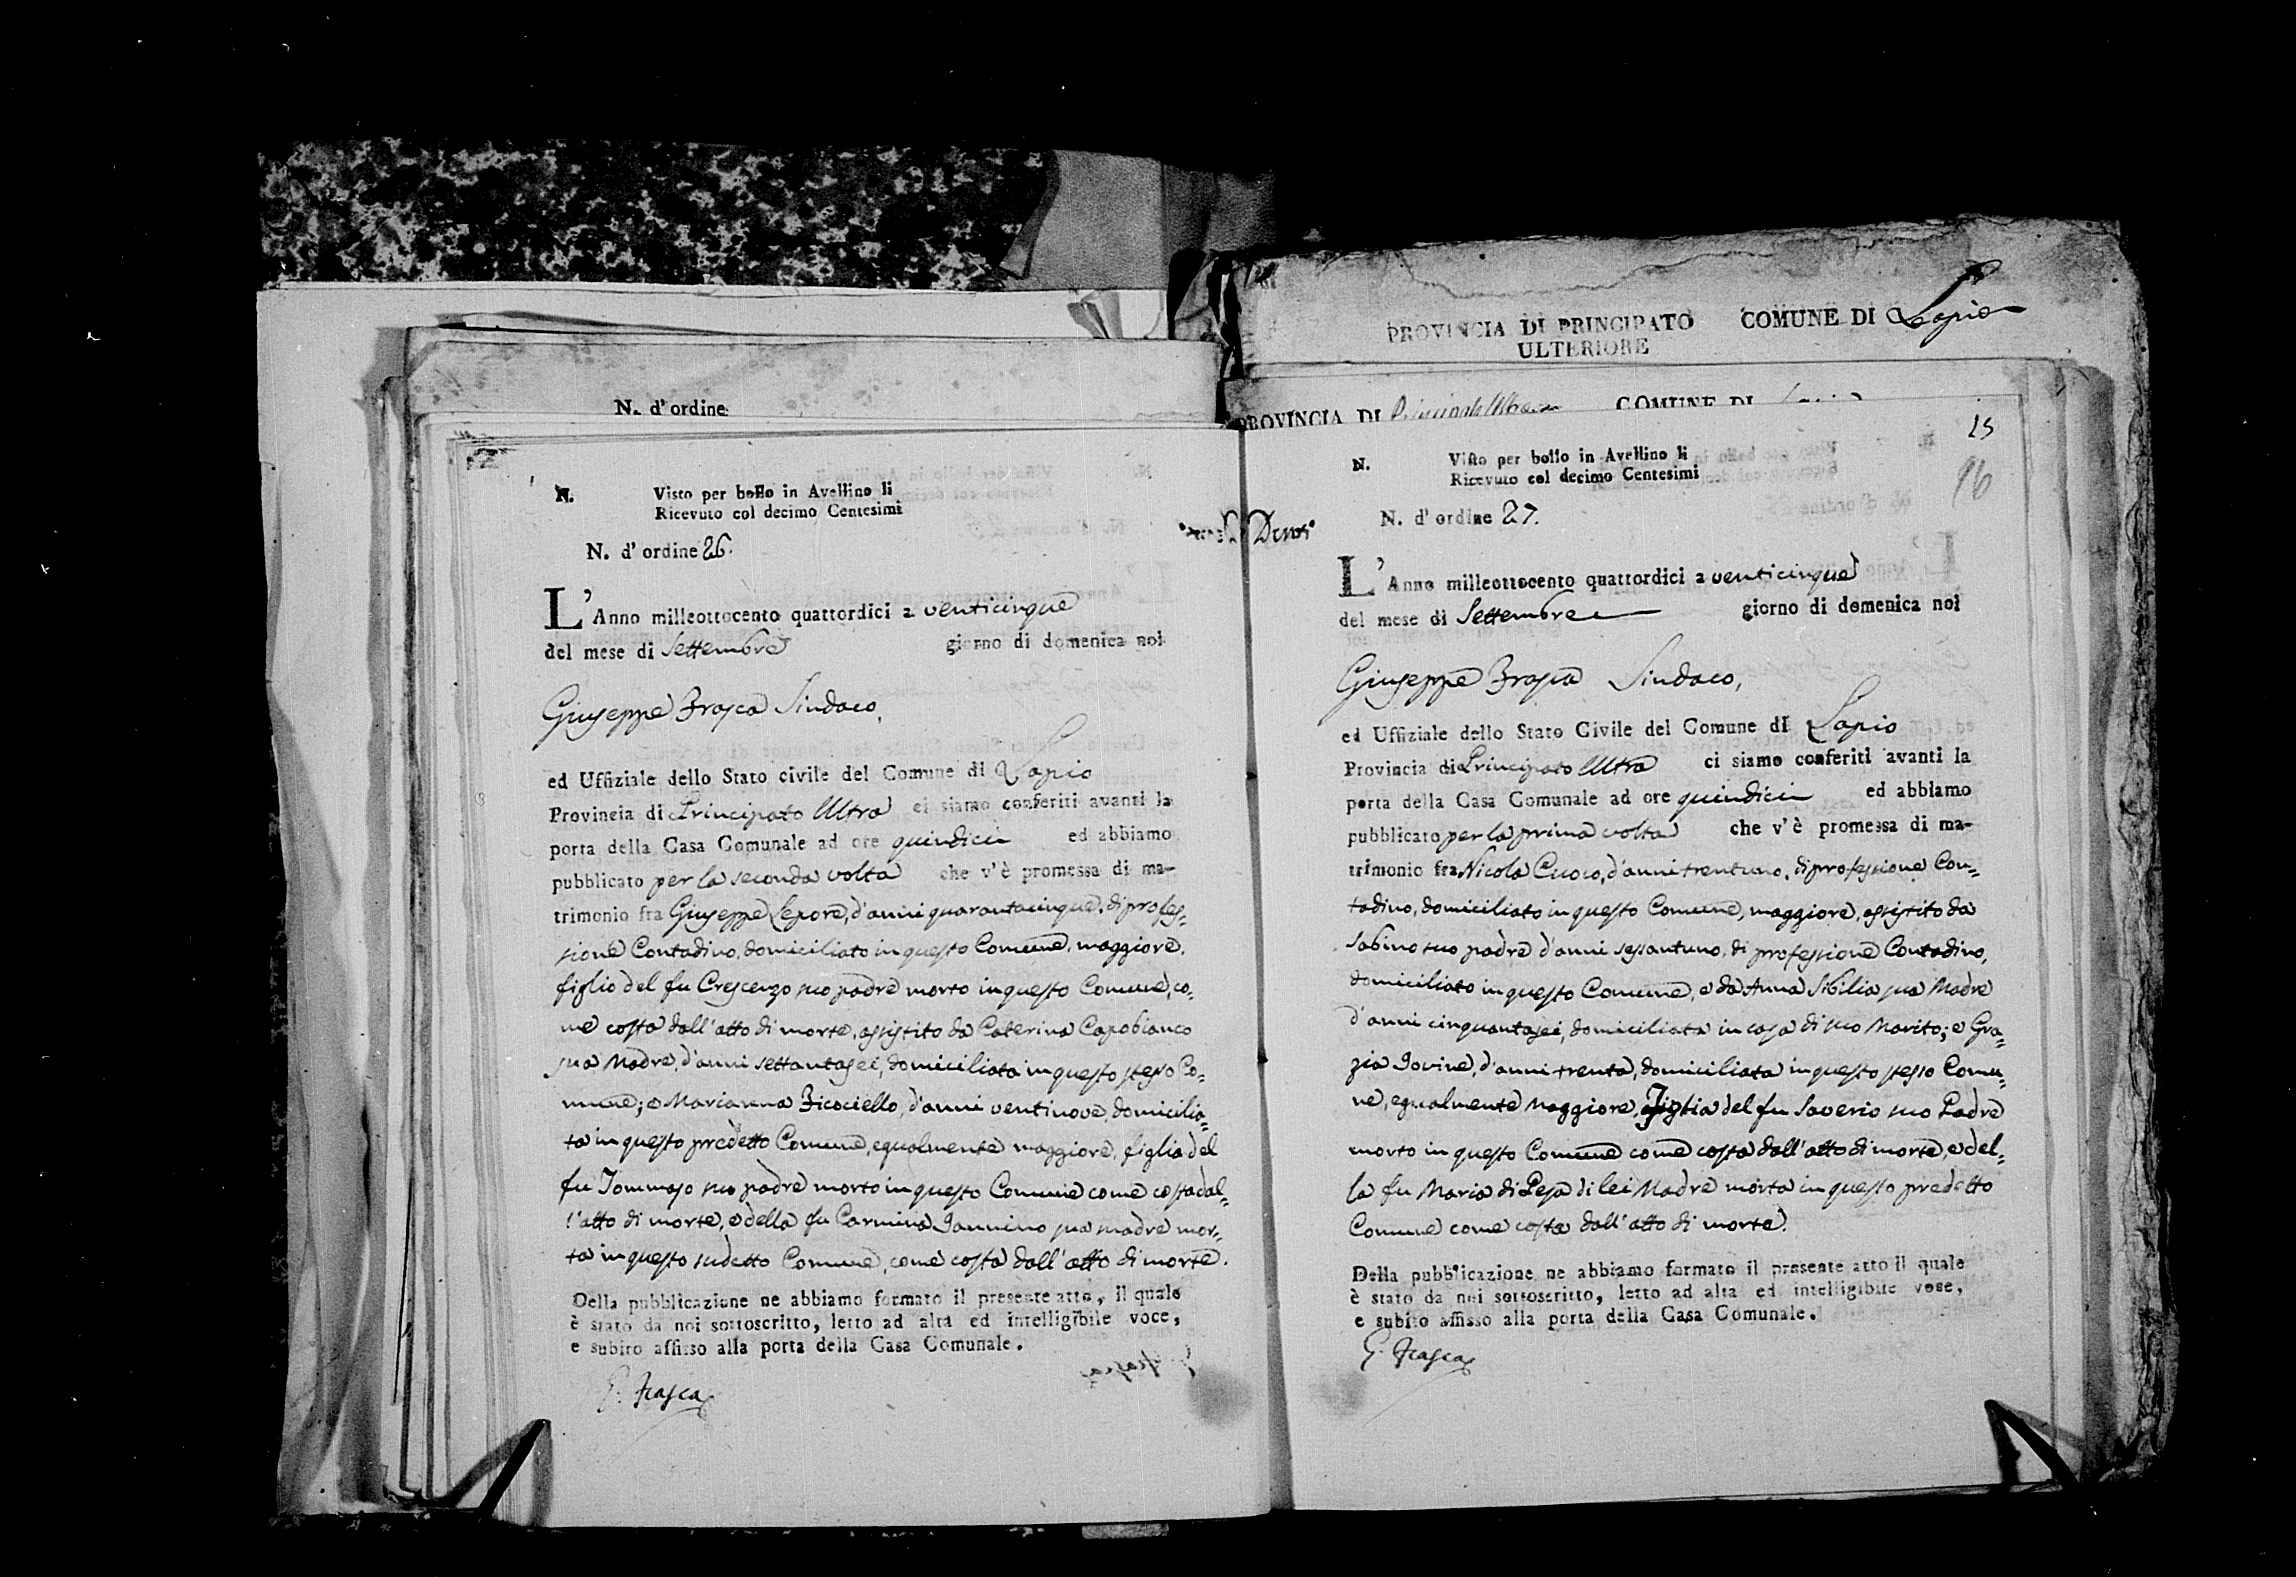 N. d'ordine
N.
Visto per bollo in Avellino li
Ricevuto col decimo Centesimi
N. d'ordine 26.
L'Anno milleottocento quattordici a venticinque
del mese di Settembre giorno di domenica noi
Giuseppe Frasca Sindaco,
ed Uffiziale dello Stato civile del Comune di Lapio
Provincia di Principato Ultra ci siamo conferiti avanti la
porta della Casa Comunale ad ore quindici ed abbiamo
pubblicato per la seconda volta che v'è promessa di ma-
trimonio fra Giuseppe Lepore, d'anni quarantacinque, di profes=
sione Contadino, domiciliato in questo Comune, maggiore,
figlio del fu Crescenzo suo padre morto in questo Comune, co-
me costa dall'atto di morte, assistito da Caterina Capobianco
sua Madre, d'anni settantasei, domiciliata in questo stesso Co-
mune; e Marianna Ficociello, d'anni ventinove, domicilia=
ta in questo predetto Comune, egualmente maggiore, figlia del
fu Tommaso suo padre morto in questo Comune come costa dal=
l'atto di morte, e della fu Carmina Iannino sua madre mor=
ta in questo sudetto Comune, come costa dall'atto di morte.
Della pubblicazione ne abbiamo formato il presente atto, il quale
è stato da noi sottoscritto, letto ad alta ed intelligibile voce,
e subito affisso alla porta della Casa Comunale.
G. Frasca
PROVINCIA DI PRINCIPATO COMUNE DI Lapio
ULTERIORE
PROVINCIA DI Principato Ultra COMUNE DI
15
96
N.
Visto per bollo in Avellino li
Ricevuto col decimo Centesimi
N. d'ordine 27.
L'Anno milleottocento quattordici a venticinque
del mese di Settembre giorno di domenica noi
Giuseppe Frasca Sindaco,
ed Uffiziale dello Stato Civile del Comune di Lapio
Provincia di Principato Ultra ci siamo conferiti avanti la
porta della Casa Comunale ad ore quindici ed abbiamo
pubblicato per la prima volta che v'è promessa di ma-
trimonio fra Nicola Cuoco, d'anni trentuno, di professione Con=
tadino, domiciliato in questo Comune, maggiore, assistito da
Sabino suo padre d'anni sessantuno, di professione Contadino,
domiciliato in questo Comune, e da Anna Sibilia sua Madre
d'anni cinquantasei, domiciliata in casa di suo Marito; e Gra=
zia Iovine, d'anni trenta, domiciliata in questo stesso Comu=
ne, egualmente Maggiore, Figlia del fu Saverio suo Padre
morto in questo Comune come costa dall'atto di morte, e del=
la fu Maria di Pesa di lei Madre morta in questo predetto
Comune come costa dall'atto di morte.
Della pubblicazione ne abbiamo formato il presente atto il quale
è stato da noi sottoscritto, letto ad alta ed intelligibile voce,
e subito affisso alla porta della Casa Comunale.
G. Frasca